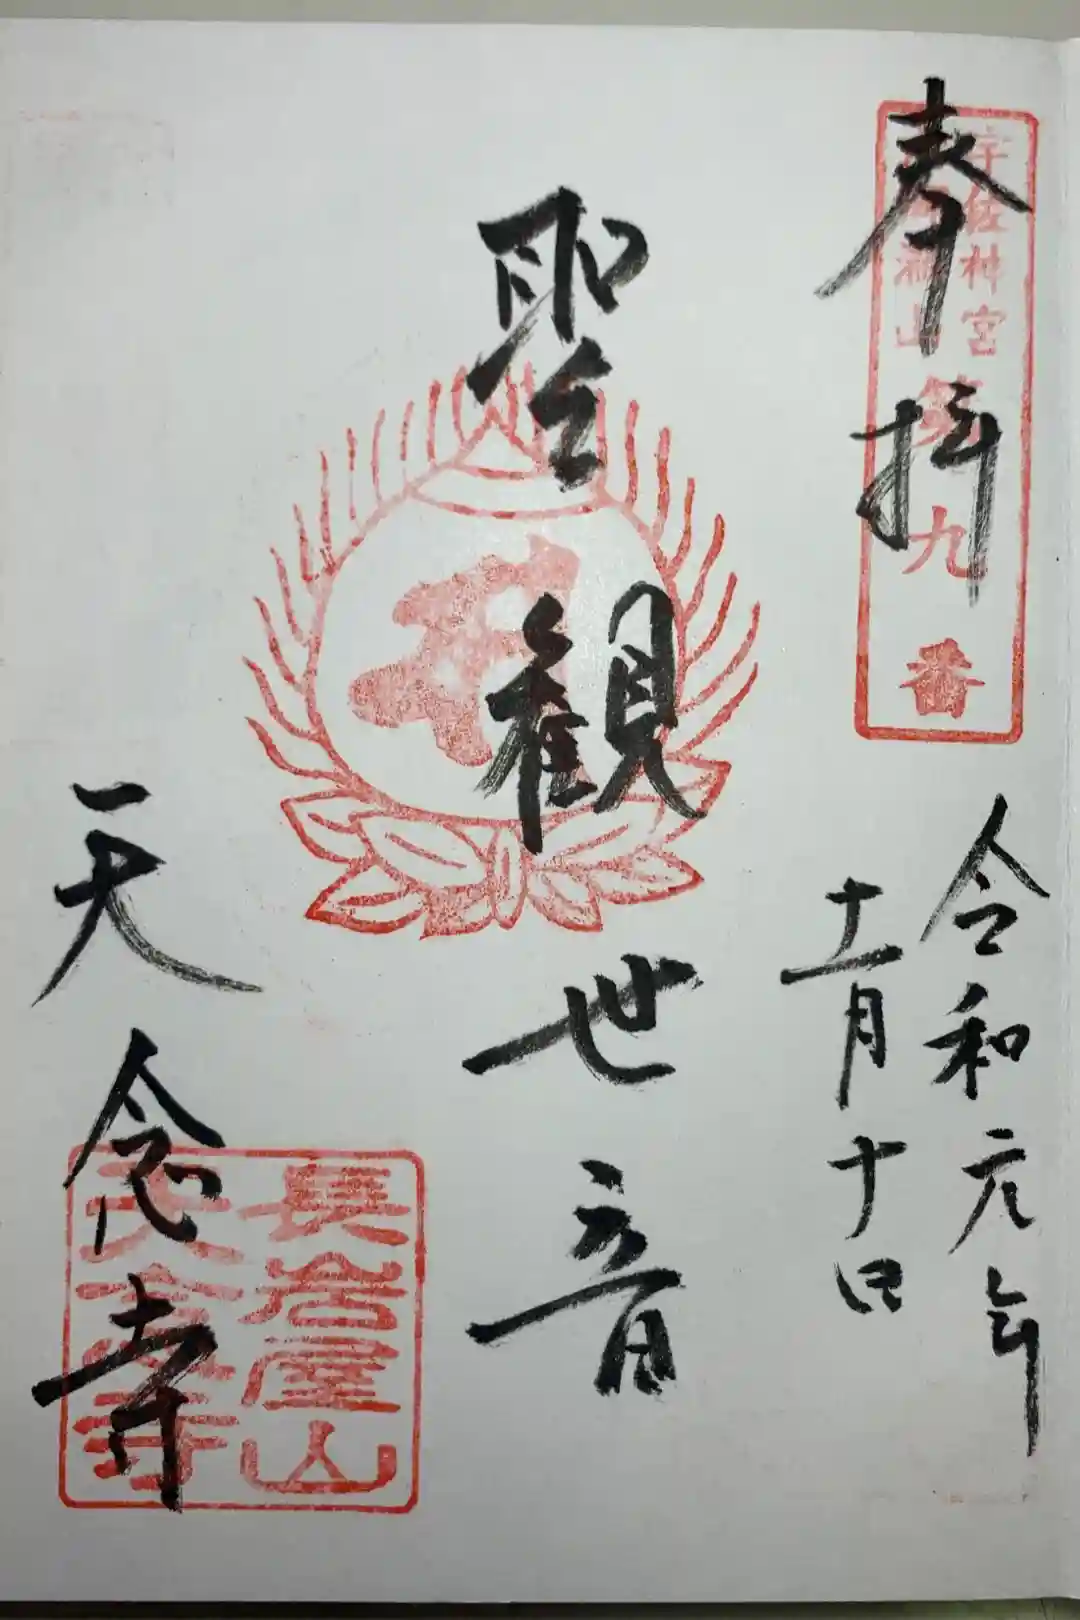 奉拝
宇佐神宮
六郷満山
第九番
令和元年
十一月十日
聖観世音
天念寺
長岩屋山
天念寺